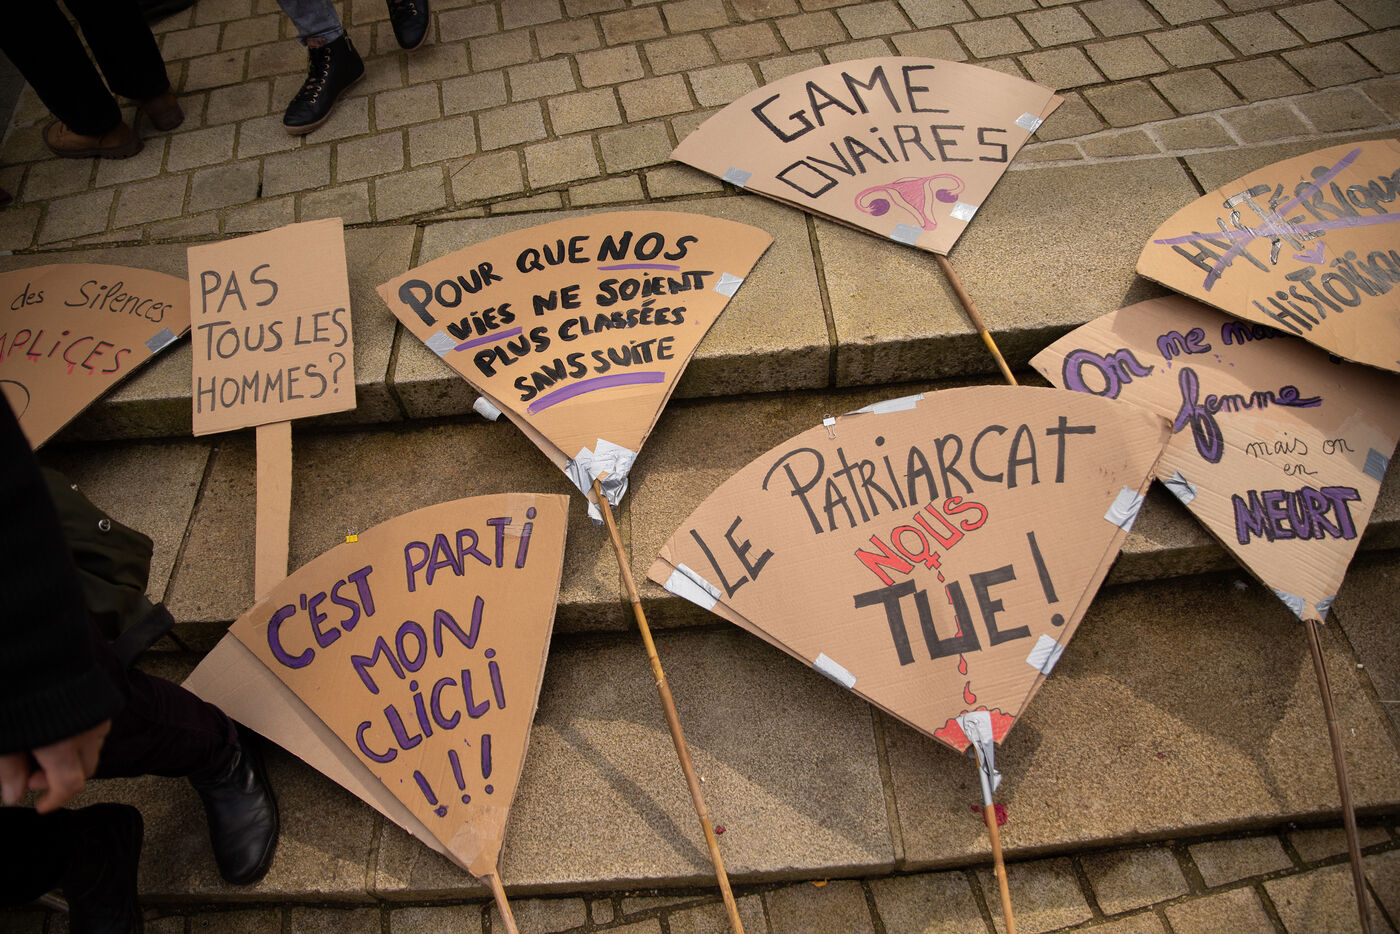 des Silences
PLiÇES
PAS
TOUS LES
HOMMES?
POUR QUE NOS
VIES NE SOIENT
PLUS CLASSÉES
SANS SUITE
GAME
OVAIRES
HYSTÉRIQUE
HISTORIQUE
On me
femme
mais on
en
MEURT
LE PATRIARCAT
NOUS
TUE!
C'EST PARTi
MON
CLICLI
!!!